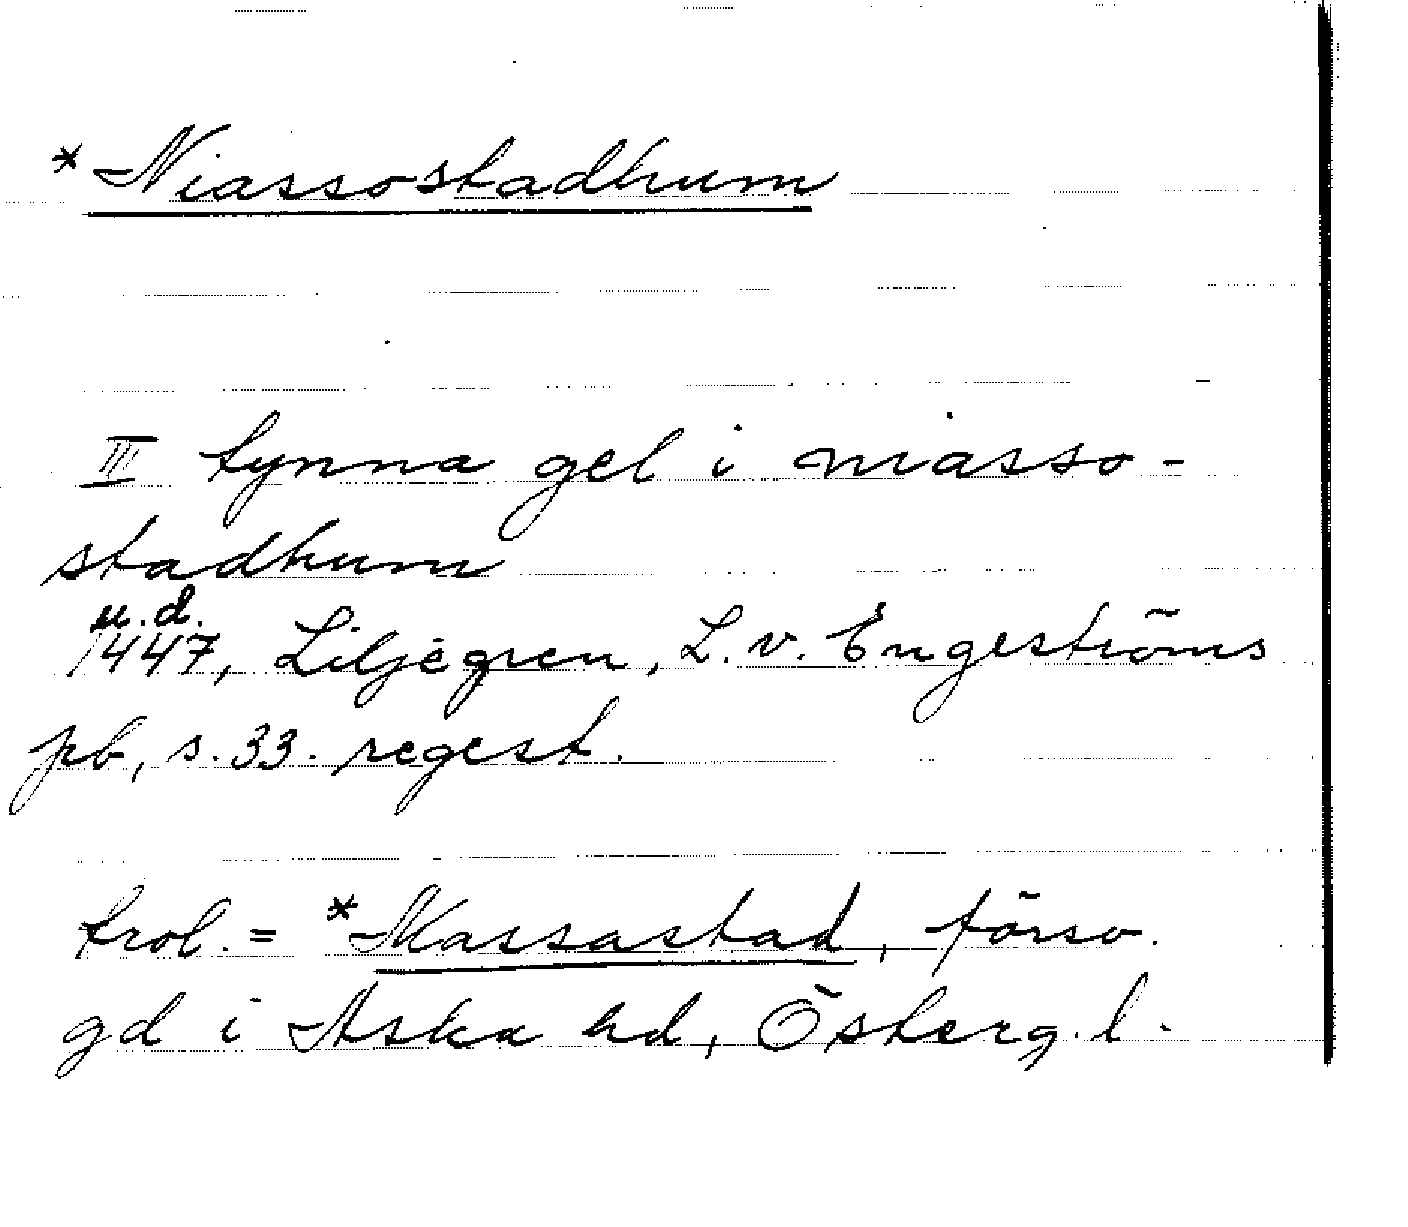 * Niassostadhum
III tynna gel i niasso-
stadhum
u.d.
1447, Liljegren, L.v. Engeströms
pb, s. 33. regest.
trol. = *Massastad, försv.
gd i Aska hd, Österg. l.